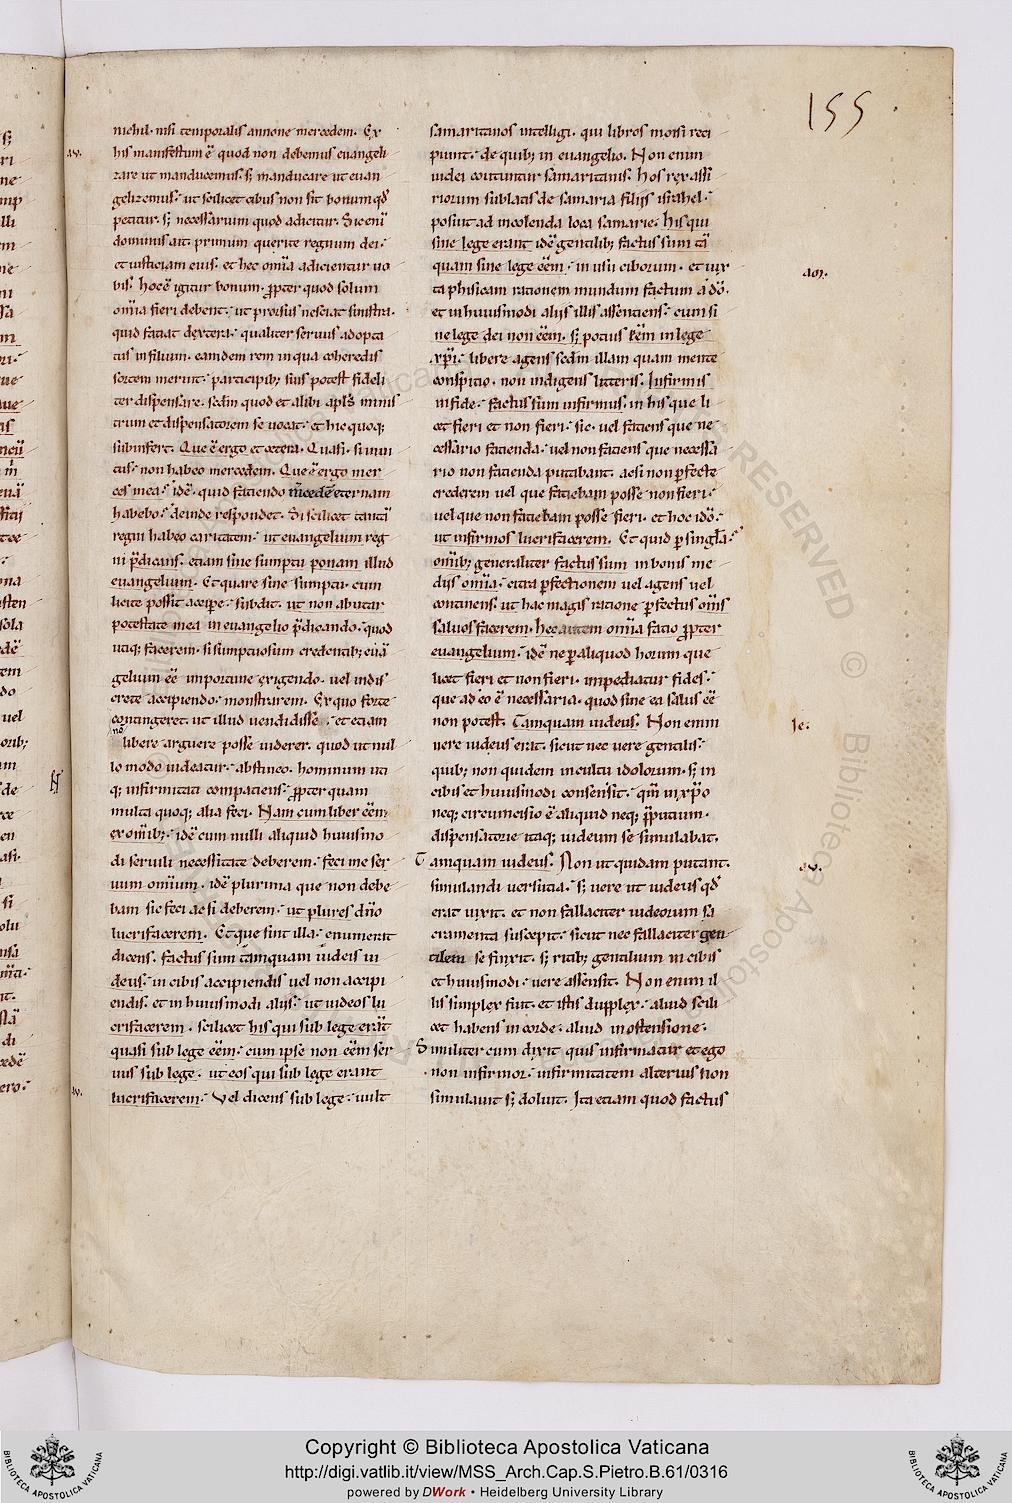 155
nichil· nisi temporalis annone mercedem. Ex
his manifestum ē quod non debemus euangeli
zare ut manducemus· sꝫ manducare ut euan
gelizemus· ut scilicet cibus non sit bonum qđ
petitur· sꝫ necessarium quod adicitur. Sic enī
dominus ait· primum querite regnum dei·
et iusticiam eius· et hec om̄ia adicientur uo
bis. hoc ē igitur bonum· ꝓpter quod solum
om̄ia fieri debent· ut prorsus nesciat sinistra·
quid faciat dextera· qualiter seruus adopta
tus in filium· eamdem rem in qua coheredis
sortem meruit· participibꝫ suis potest fideli
ter dispensare. secdm quod et alibi apl̄s minis
trum et dispensatorem se uocat· et hic quoqꝫ
subinfert. Que ē ergo et cetera. Quasi· si inui
tus· non habeo mercedem. Que ē ergo mer
ces mea· idē· quid faciendo m̄cedē eternam
habebo· deinde respondet. Si scilicet tantā
regni habeo caritatem· ut euangelium reg
ni p̄dicans· etiam sine sumptu ponam illud
euangelium. Et quare sine sumptu· cum
licite possit accipe· subdit· ut non abutar
potestate mea in euangelio p̄dicando· quod
utiqꝫ facerem· si sumptuosum credentibꝫ euā
gelium ēē importune exigendo· uel indis
crete accipiendo· monstrarem. Ex quo forte
contingeret· ut illud uendidisse· et etiam
nō
libere arguere posse uiderer. quod ut nul
lo modo uideatur· abstineo· hominum uti
qꝫ infirmitati compatiens· ꝓpter quam
multa quoqꝫ alia feci. Nam cum liber eēm
ex om̄ibꝫ· idē cum nulli aliquid huiusmo
di seruili necessitate deberem· feci me ser
uum omīum· idē plurima que non debe
bam sic feci ac si deberem· ut plures dn̄o
lucrifacerem. Et que sint illa· enumerat
dicens. factus sum tāmquam iudeis iu
deus· in cibis accipiendis uel non accipi
endis· et in huiusmodi aliis· ut iudeos lu
crifacerem· scilicet his qui sub lege erāt
quasi sub lege eēm· cum ipse non eēm ser
uus sub lege· ut eos qui sub lege erant
lucrifacerem· Vel dicens sub lege· uult
samaritanos intelligi· qui libros moisi reci
piunt· de quibꝫ in euangelio. Non enim
iudei coutuntur samaritanis. Hos rex assi
riorum sublatis de samaria filiis israhel·
posuit ad incolenda loca samarie· his qui
sine lege erant idē gentilibꝫ factus sum tā
quam sine lege eēm· in usu ciborum· et iux
ta phisicam rationem mundum factum a dō·
et in huiusmodi aliis illis assentiens· cum si
ne lege dei non eēm· sꝫ potius eēm in lege
xp̄i· libere agens secdm illam quam mente
conspicio· non indigens litteris. Infirmis
in fide· factus sum infirmus· in his que li
cet fieri et non fieri· sic· uel faciens que ne
cessario facienda· uel non faciens que necessa
rio non facienda putabant· ac si non ꝑfecte
crederem uel que faciebam posse non fieri·
uel que non faciebam posse fieri· et hoc idō·
ut infirmos lucrifacerem. Et quid ꝑ singl̄a·
om̄ibꝫ generaliter factus sum in bonis me
diis om̄ia· citra ꝑfectionem uel agens uel
continens· ut hac magis ratione ꝑfectus om̄s
saluos facerem· hec autem om̄ia facio ꝓpter
euangelium· idē ne ꝑ aliquod horum que
licet fieri et non fieri· impediatur fides·
que ad eo ē necessaria· quod sine ea salus ēē
non potest. Tamquam iudeus. Non enim
uere iudeus erat· sicut nec uere gentilis·
quibꝫ non quidem in cultu idolorum· sꝫ in
cibis et huiusmodi consensit· qm̄ in xp̄o
neqꝫ circumcisio ē aliquid neqꝫ p̄putium·
dispensatorie itaqꝫ iudeum se simulabat.
Tamquam iudeus. Non ut quidam putant·
simulandi uersutia· sꝫ uere ut iudeus qđ
erat uixit· et non fallaciter iudeorum sa
cramenta suscepit· sicut nec fallaciter gen
tilem se finxit· sꝫ ritibꝫ gentilium in cibis
et huiusmodi· uere assensit. Non enim il
lis simplex fuit· et istis dupplex· aliud scili
cet habens in corde· aliud in ostensione·
Similiter cum dixit quis infirmatur et ego
non infirmor· infirmitatem alterius non
simulauit sꝫ doluit. Ita etiam quod factus
av.
av.
am.
Ie.
av.
Copyright © Biblioteca Apostolica Vaticana
http://digi.vatlib.it/view/MSS_Arch.Cap.S.Pietro.B.61/0316
powered by DWork • Heidelberg University Library